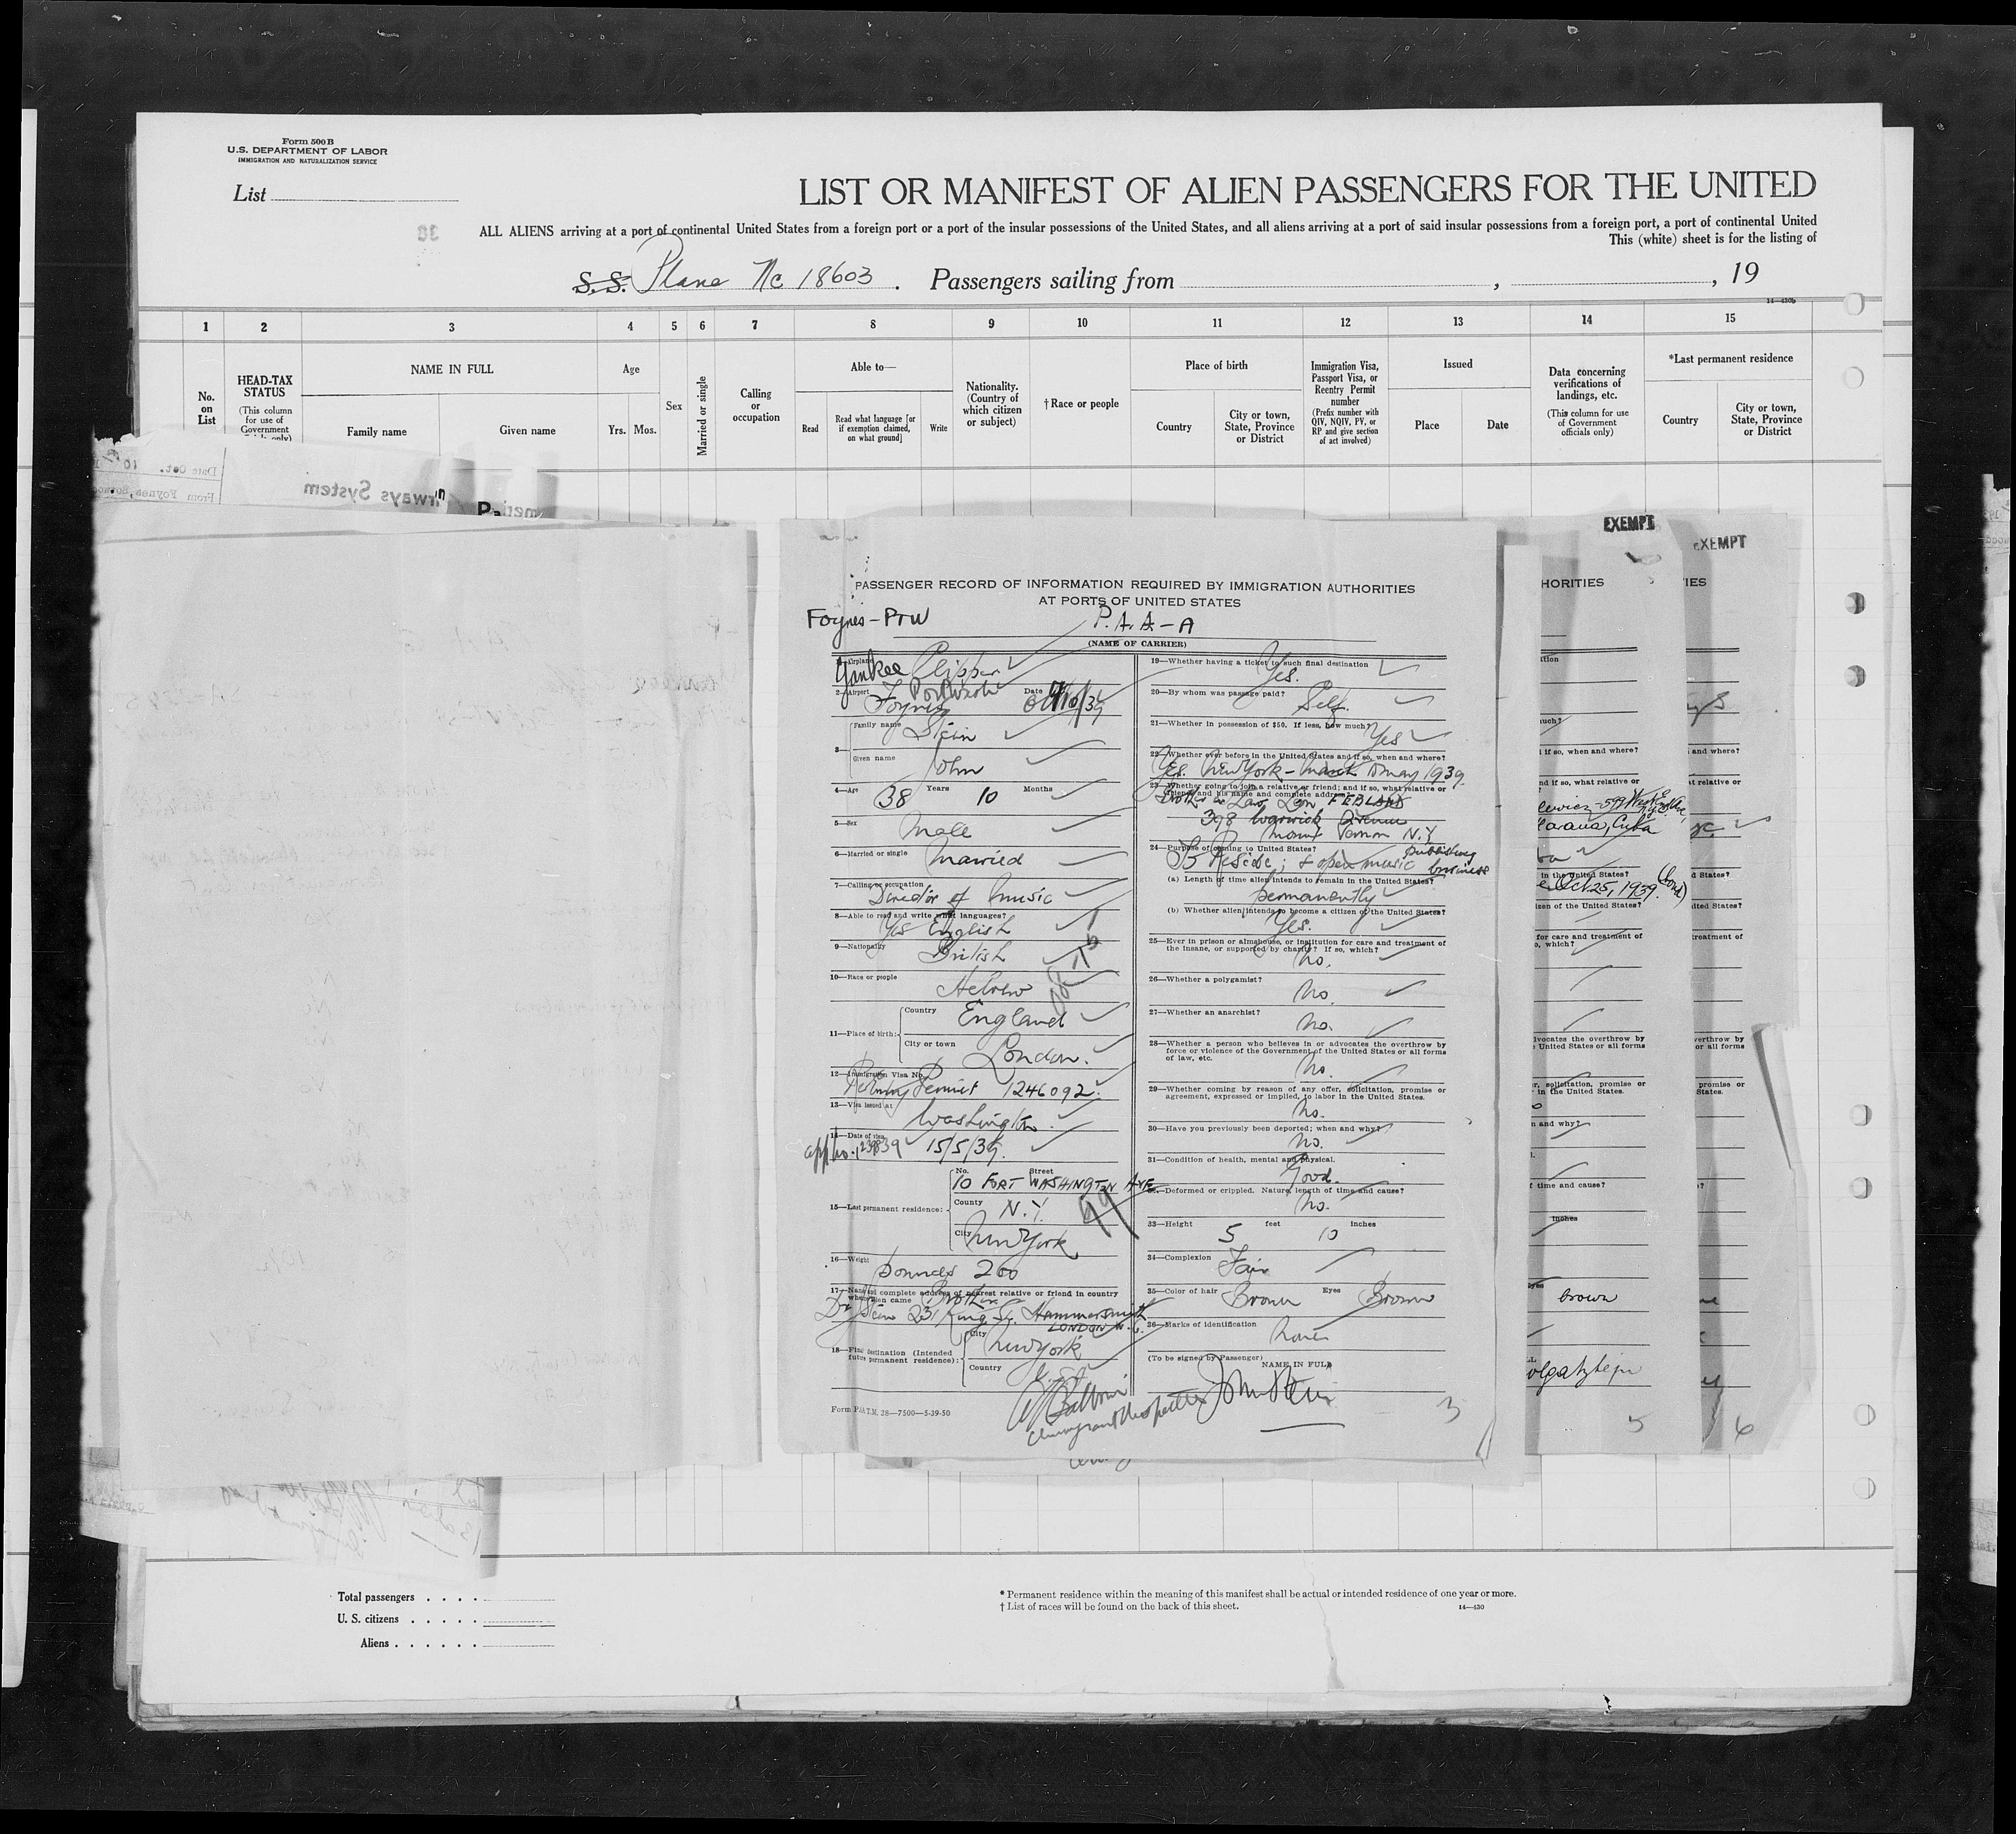 Form 500B
U.S. DEPARTMENT OF LABOR
IMMIGRATION AND NATURALIZATION SERVICE
List
LIST OR MANIFEST OF ALIEN PASSENGERS FOR THE UNITED
ALL ALIENS arriving at a port of continental United States from a foreign port or a port of the insular possessions of the United States, and all aliens arriving at a port of said insular possessions from a foreign port, a port of continental United
This (white) sheet is for the listing of
S.S. Plane Nc 18603. Passengers sailing from , , 19
14—430b
1 2 3 4 5 6 7 8 9 10 11 12 13 14 15
No. on List
HEAD-TAX STATUS
(This column for use of Government
NAME IN FULL
Family name Given name
Age
Yrs. Mos.
Sex
Married or single
Calling or occupation
Able to—
Read
Read what language [or if exemption claimed, on what ground]
Write
Nationality. (Country of which citizen or subject)
†Race or people
Place of birth
Country
City or town, State, Province or District
Immigration Visa, Passport Visa, or Reentry Permit number
(Prefix number with QIV, NQIV, PV, or RP and give section of act involved)
Issued
Place Date
Data concerning verifications of landings, etc.
(This column for use of Government officials only)
*Last permanent residence
Country
City or town, State, Province or District
PASSENGER RECORD OF INFORMATION REQUIRED BY IMMIGRATION AUTHORITIES
AT PORTS OF UNITED STATES
Foynes-PtW P.A.A-A
(NAME OF CARRIER)
1—Airplane Yankee Clipper
2—Airport Foynes Date Oct 10/39
3— Family name Stein
Given name John
4—Age 38 Years 10 Months
5—Sex Male
6—Married or single Married
7—Calling or occupation Director of Music
8—Able to read and write what languages?
Yes English
9—Nationality British
10—Race or people Hebrew
11—Place of birth: Country England
City or town London.
12—Immigration Visa No.
Permit 1246092.
13—Visa issued at Washington.
14—Date of visa 15/5/39.
15—Last permanent residence:
No. Street
10 FORT WASHINGTON AVE
County N.Y.
City New York
16—Weight Pounds 200
17—Name and complete address of nearest relative or friend in country
when alien came Brother
Dr Stein 231 King St. Hammersmith
LONDON W.6.
18—Final destination (Intended
future permanent residence):
City New York
Country
Form PAA T.M. 28—7500—5-39-50
19—Whether having a ticket to such final destination
Yes.
20—By whom was passage paid?
Self.
21—Whether in possession of $50. If less, how much?
Yes
22—Whether ever before in the United States and if so, when and where?
Yes. New York - March to May 1939.
23—Whether going to join a relative or friend; and if so, what relative or
friend and his name and complete address.
Brother in Law Leon
398 Warwick Avenue
Mount Vernon N.Y.
24—Purpose of coming to United States?
To Reside; & open music publishing business
(a) Length of time alien intends to remain in the United States?
permanently
(b) Whether alien intends to become a citizen of the United States?
Yes.
25—Ever in prison or almshouse, or institution for care and treatment of
the insane, or supported by charity? If so, which?
No.
26—Whether a polygamist?
No.
27—Whether an anarchist?
No.
28—Whether a person who believes in or advocates the overthrow by
force or violence of the Government of the United States or all forms
of law, etc.
No.
29—Whether coming by reason of any offer, solicitation, promise or
agreement, expressed or implied, to labor in the United States.
No.
30—Have you previously been deported; when and why?
No.
31—Condition of health, mental and physical.
Good.
32—Deformed or crippled. Nature, length of time and cause?
No.
33—Height 5 feet 10 inches
34—Complexion Fair
35—Color of hair Brown Eyes Brown
36—Marks of identification None
(To be signed by Passenger)
NAME IN FULL
John Stein
3
EXEMPT
HORITIES
if so, when and where?
nd if so, what relative or
Havana, Cuba
in the United States?
Oct 25, 1939.
zen of the United States?
for care and treatment of
o, which?
vocates the overthrow by
United States or all forms
r, solicitation, promise or
in the United States.
n and why?
f time and cause?
inches
brown
5
EXEMPT
IES
and where?
at relative or
d States?
ited States?
treatment of
verthrow by
or all forms
promise or
States.
6
Total passengers
U. S. citizens
Aliens
* Permanent residence within the meaning of this manifest shall be actual or intended residence of one year or more.
† List of races will be found on the back of this sheet.
14—430